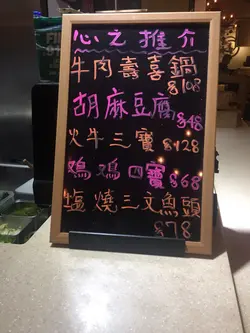 心之推介
牛肉壽喜鍋
$108
胡麻豆腐 $48
火牛三寶 $128
鴉鴉四寶 $68
塩燒三文魚頭
$78